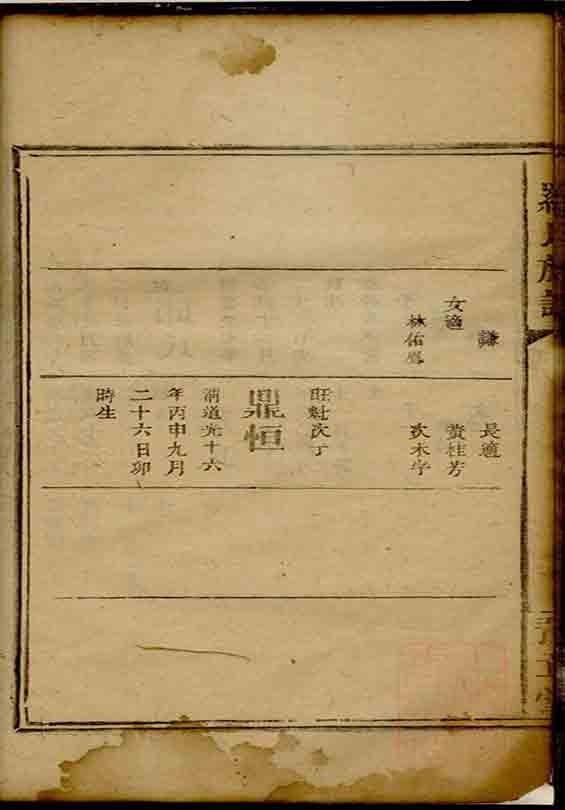 羅氏族譜
豫章堂
謙
女適
林佑
長適
黃桂芳
次未字
旺魁次子
鼎恒
清道光十六
年丙申九月
二十六日卯
時生